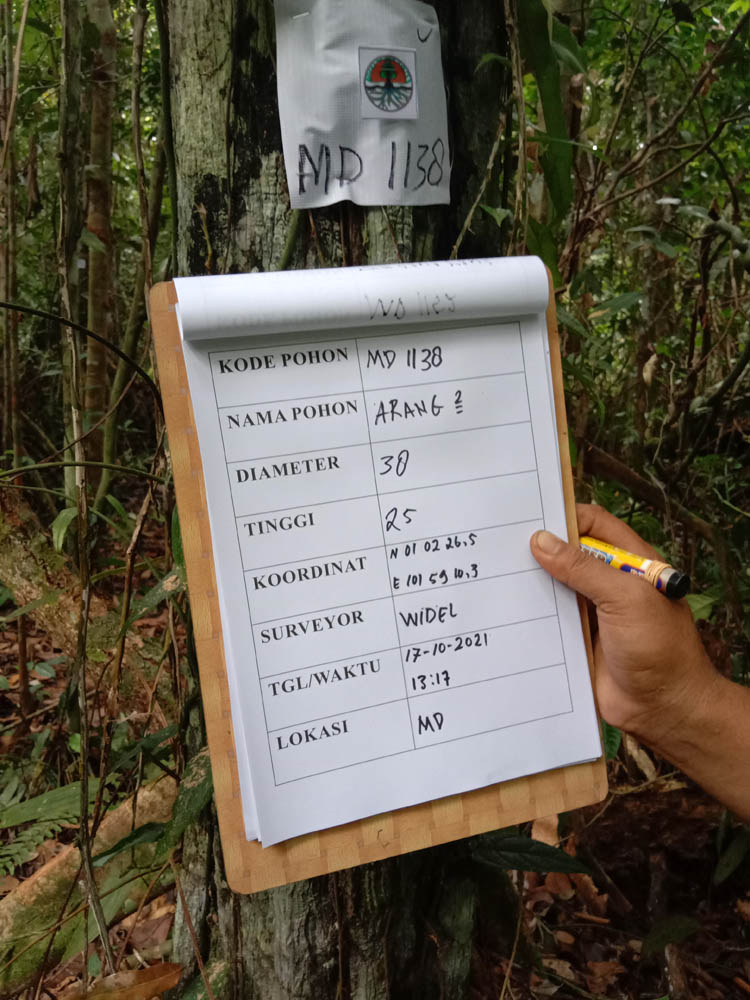 MD 1138
KODE POHON MD 1138
NAMA POHON ARANG 2
DIAMETER 30
TINGGI 25
KOORDINAT N 01 02 26,5
E 101 59 10,3
SURVEYOR WIDEL
TGL/WAKTU 17-10-2021
13:17
LOKASI MD